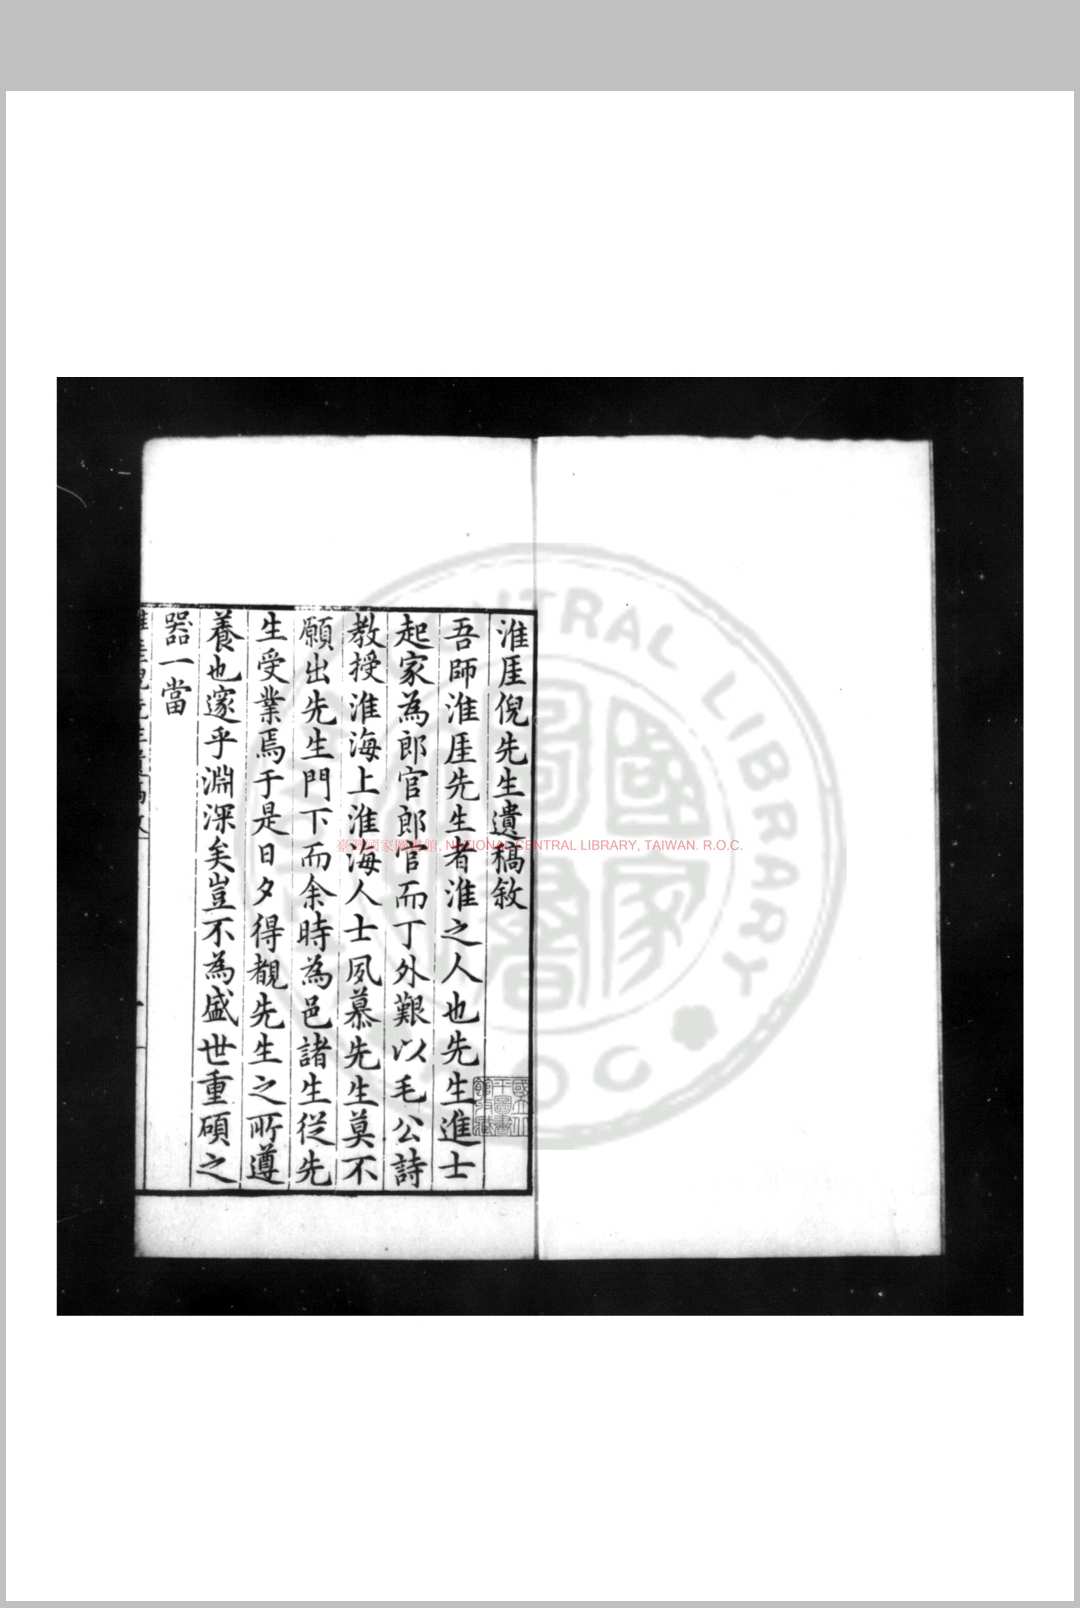 淮厓倪先生遺稿敘
吾師淮厓先生者淮之人也先生進士
起家為郎官郎官而丁外艱以毛公詩
教授淮海上淮海人士夙慕先生莫不
願出先生門下而余時為邑諸生從先
生受業焉于是日夕得覩先生之所遵
養也邃乎淵深矣豈不為盛世重碩之
器一當
臺灣國家圖書館, NATIONAL CENTRAL LIBRARY, TAIWAN. R.O.C.